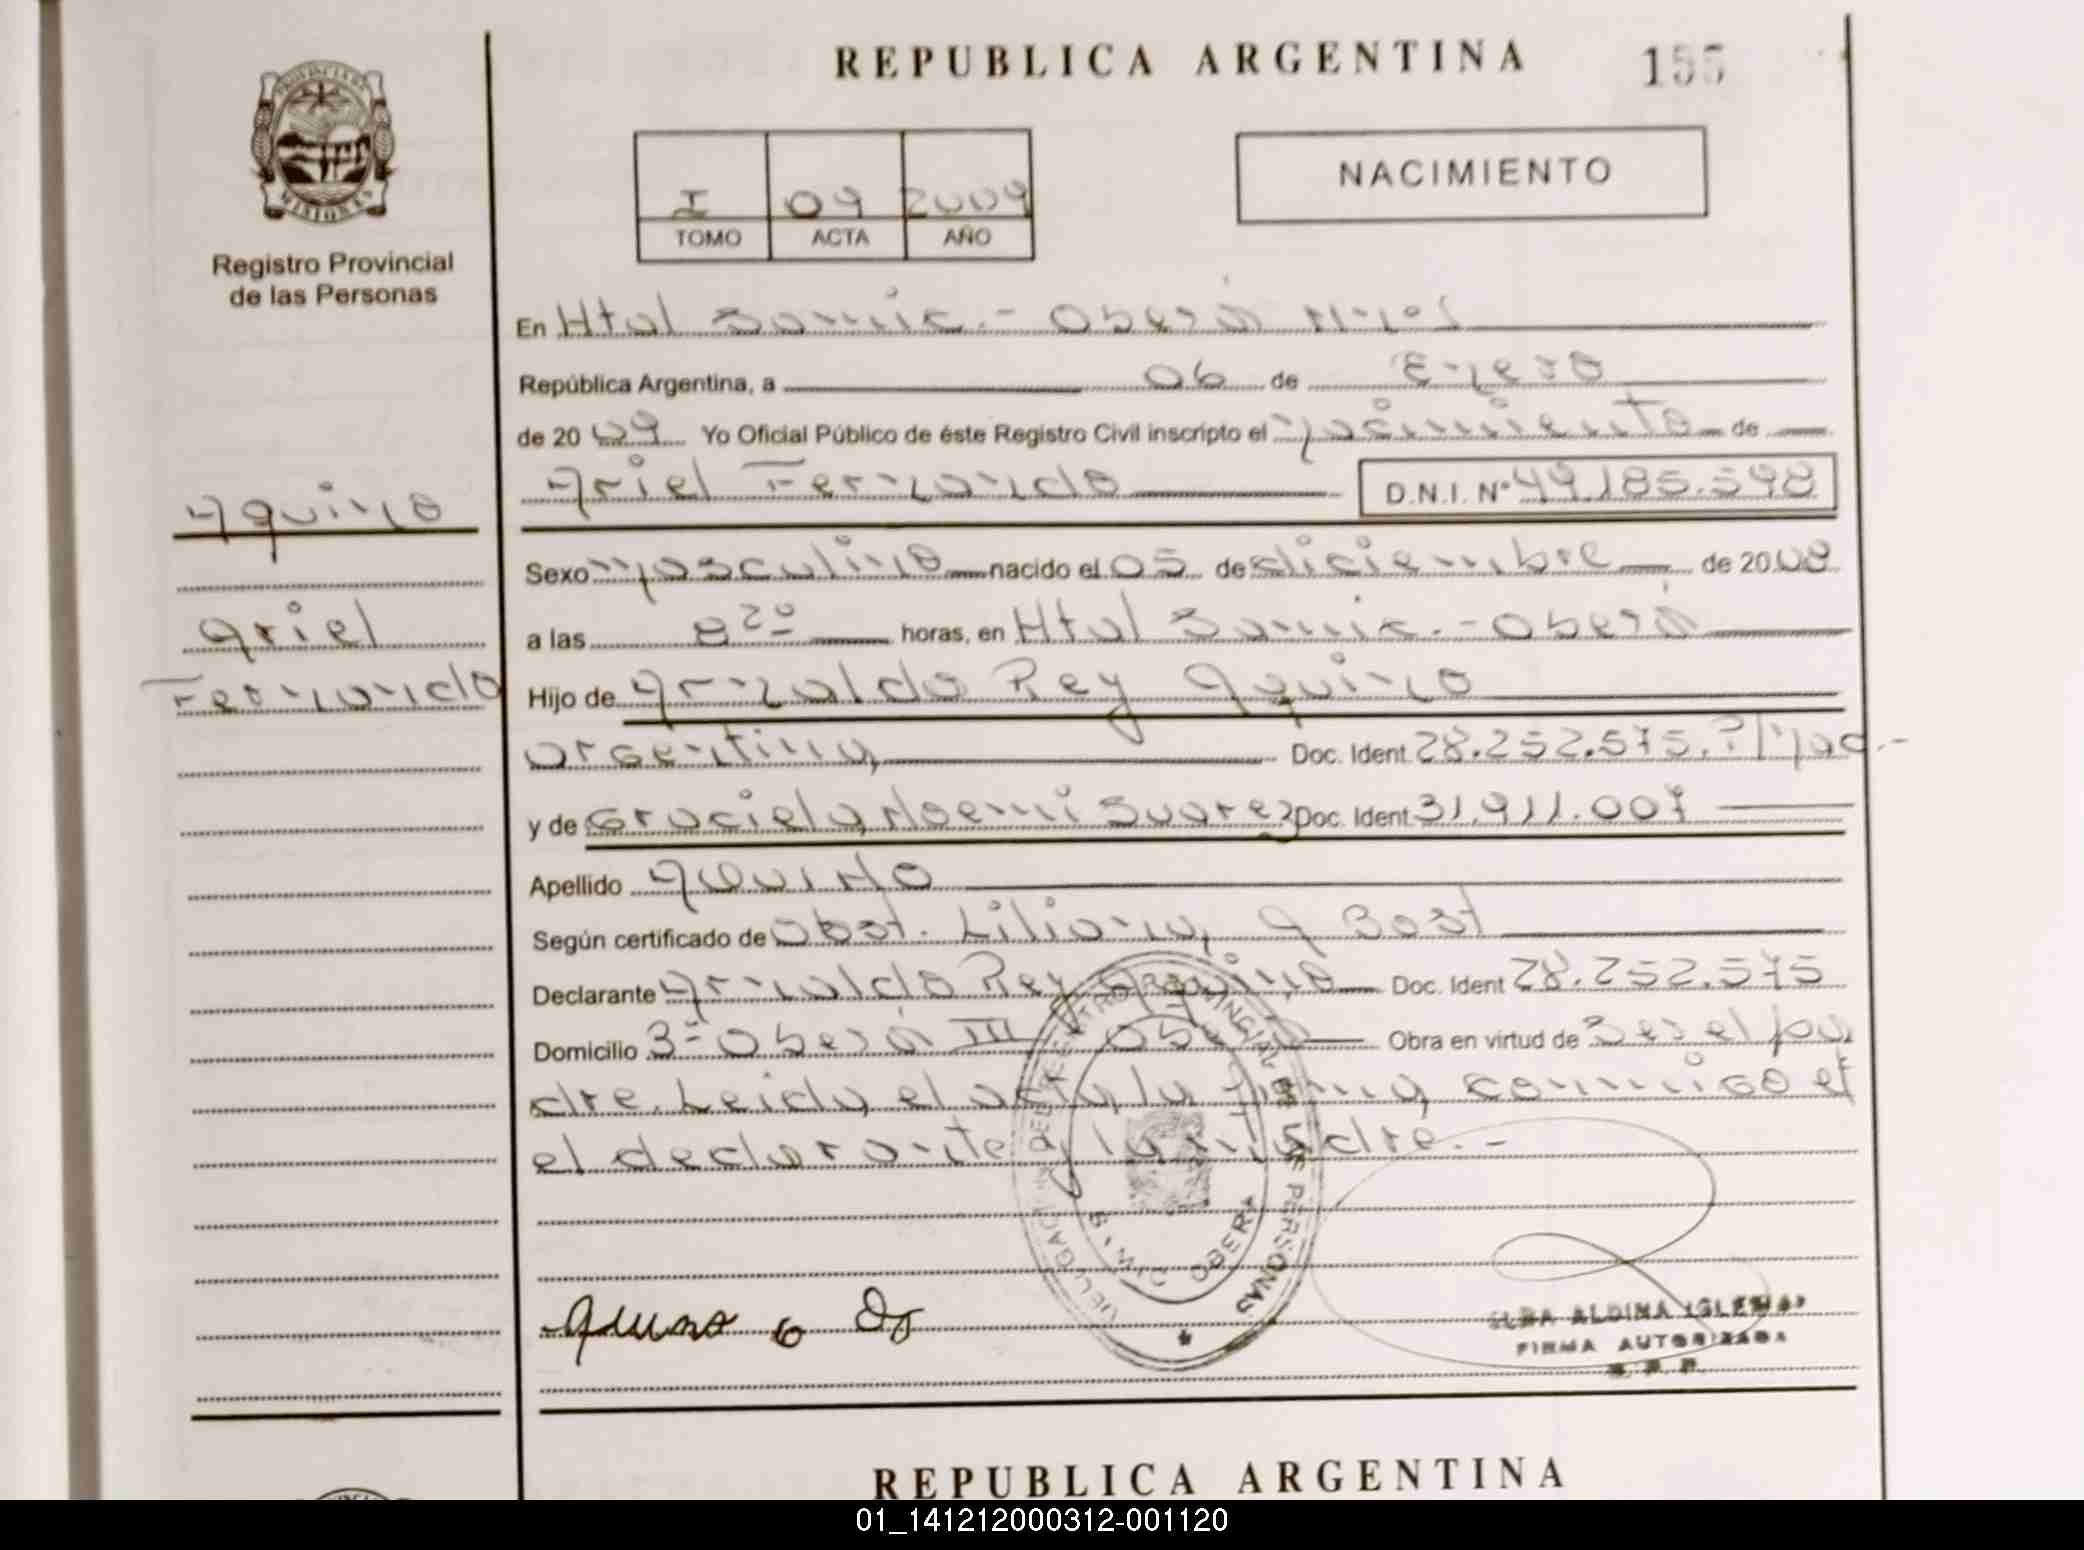 REPUBLICA ARGENTINA
155
PROVINCIA DE
MISIONES
Registro Provincial
de las Personas
I 09 2009
TOMO ACTA AÑO
NACIMIENTO
En Htal Samic.- Oberá Mnes
República Argentina, a 06 de Enero
de 2009 Yo Oficial Público de éste Registro Civil inscripto el nacimiento de
Ariel Fernando D.N.I. Nº 49.185.598
Aquino
Ariel
Fernando
Sexo masculino nacido el 05 de diciembre de 2008
a las 8²⁰ horas, en Htal Samic.- Oberá
Hijo de Arnaldo Rey Aquino
argentina, Doc. Ident. 28.252.575.
y de Graciela Noemi Suarez Doc. Ident. 31.911.007
Apellido AQUINO
Según certificado de Obst. Liliana, A Bast
Declarante Arnaldo Rey Aquino Doc. Ident 28.252.575
Domicilio Bº Oberá III Oberá Obra en virtud de ser el pa
dre. Leida el acta, la firma, conmigo
el declarante y la madre.-
DELEGACION DEL REGISTRO PROVINCIAL DE LAS PERSONAS
OBERA
ELBA ALDINA IGLESIAS
FIRMA AUTORIZADA
R. P. P.
REPUBLICA ARGENTINA
01_141212000312-001120